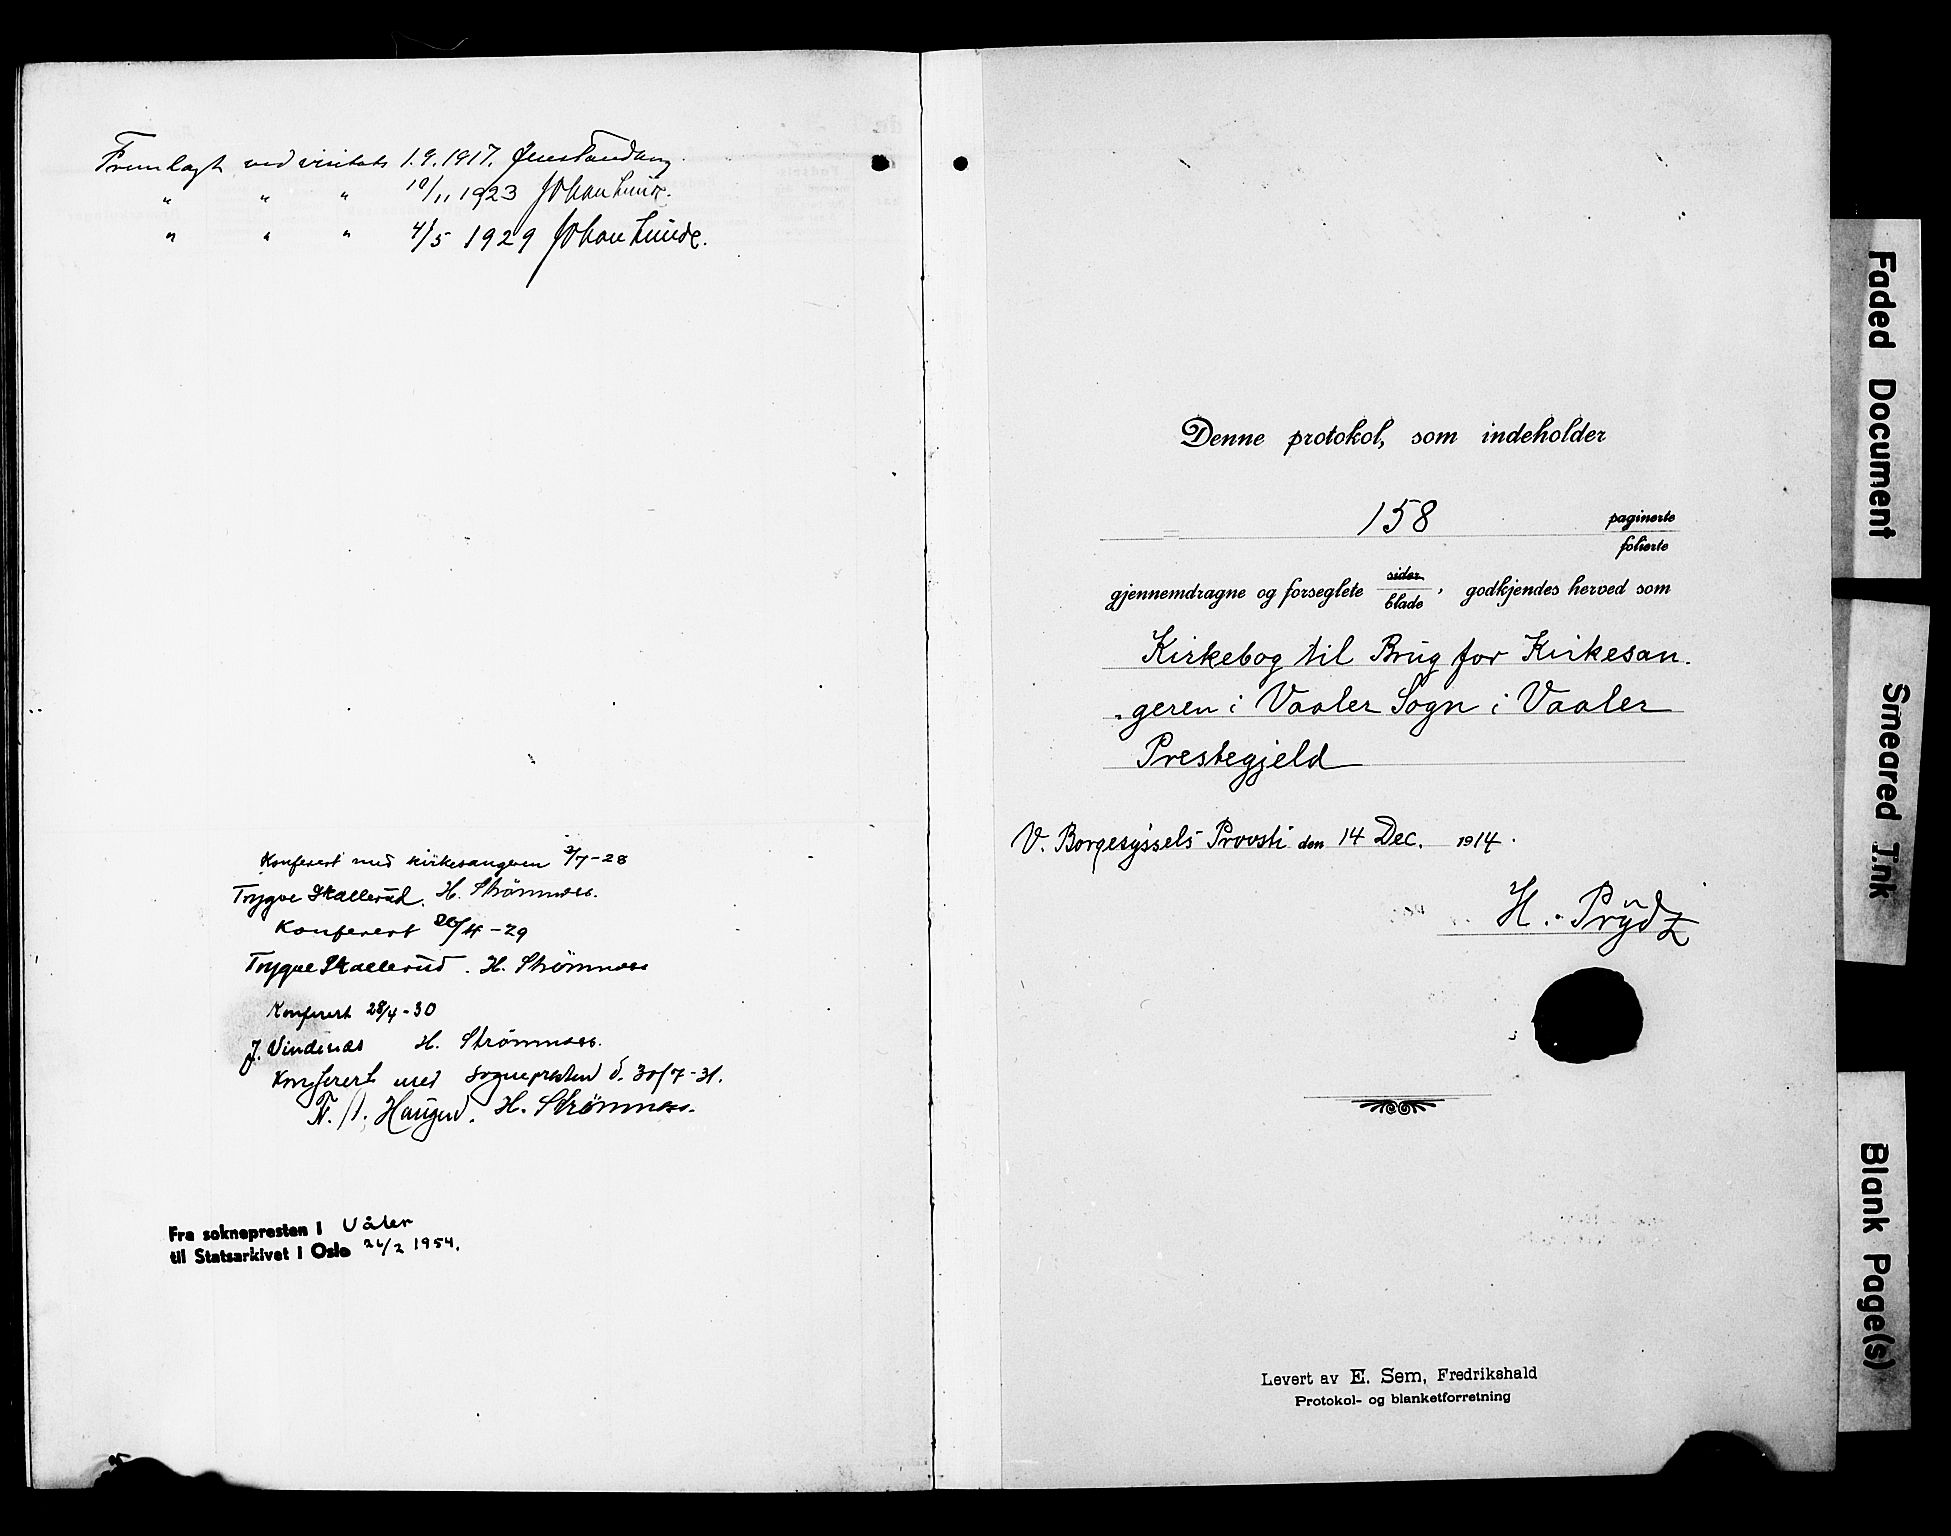 Fremlagt ved visitats 1.9.1917. Jens Tandberg
" " " 10/11 1923 Johan Lunde.
" " " 4/5 1929 Johan Lunde.
Konferert med kirkesangeren 3/7-28
Trygve Skallerud. H. Strömnæss.
Konferert 26/4-29
Trygve Skallerud. H. Strömnæss
Konferert 28/4-30
J. Vindenæs H. Strömnæss.
Konferert med sognepresten d. 30/7-31.
Haugen. H. Strömnæss.
Fra soknepresten i Våler
til Statsarkivet i Oslo 26/2 1954.
Denne protokol, som indeholder
158 paginerte
folierte
gjennemdragne og forseglete sider
blade, godkjendes herved som
Kirkebog til Brug for Kirkesan-
geren i Vaaler Sogn i Vaaler
Prestegjeld
V. Borgesyssels Provsti den 14 Dec. 1914.
H. Prydz
Levert av E. Sem, Fredrikshald
Protokol- og blanketforretning
Faded Document
Smeared Ink
Blank Page(s)